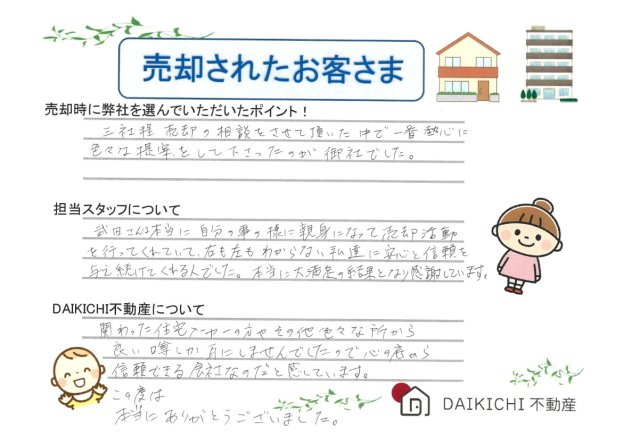 売却されたお客さま
売却時に弊社を選んでいただいたポイント！
三社程 売却の相談をさせて頂いた中で一番熱心に
色々な提案をして下さったのが御社でした。
担当スタッフについて
武田さんは本当に自分の事の様に親身になって売却活動
を行ってくれていて、右も左もわからない私達に安心と信頼を
与え続けてくれるんでした。本当に大満足の結果となり感謝しています。
DAIKICHI不動産について
関わった住宅メーカーの方やその他色々な所から
良い噂しか耳にしませんでしたので心の底から
信頼できる会社なのだと感じています。
この度は
本当にありがとうございました。
DAIKICHI 不動産